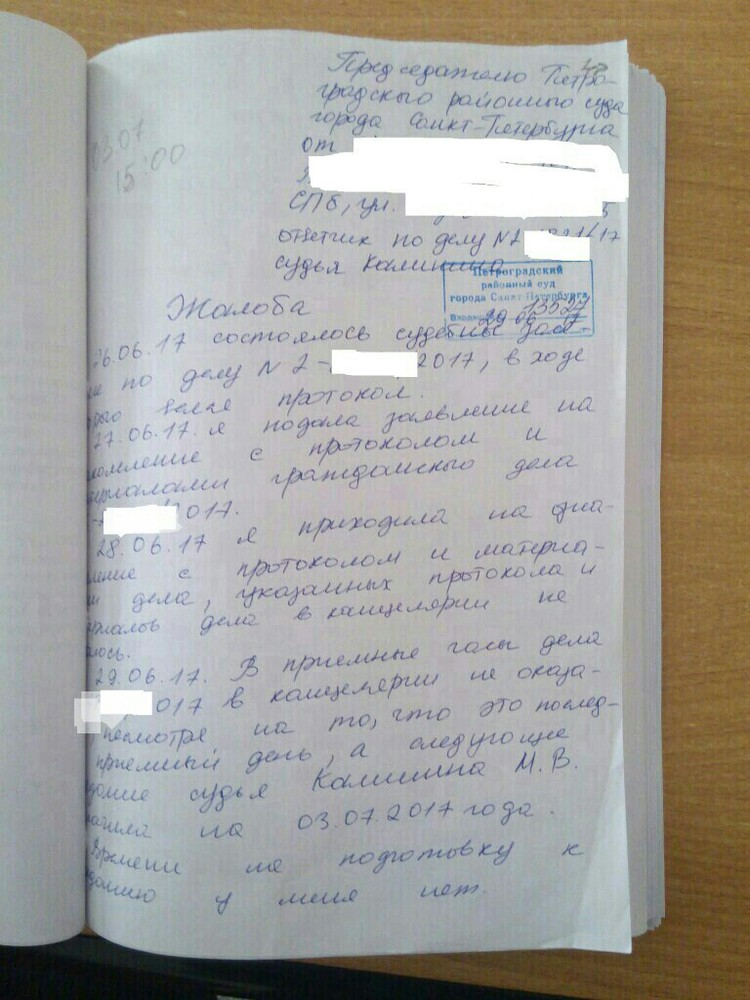 Председателю Петро-
градского районного суда
города Санкт-Петербурга
от
СПб, ул.
ответчик по делу N2
судья Калинина
03.07
15:00
Петроградский
районный суд
города Санкт-Петербурга
13527
29 06 17
Жалоба
26.06.17 состоялось судебны засе-
по делу N 2- 2017, в ходе
протокол.
27.06.17. я подала заявление на
комление с протоколом и
гражданского дела
017.
28.06.17 я приходила на озна-
мление с протоколом и материа-
и дела, указанных протокола и
дела в канцелярии не
лось.
29.06.17. В приемные часы дела
017 в канцелярии не оказа-
несмотря на то, что это послед-
приемный день, а следующие
дание судья Калинина М.В.
чила на 03.07.2017 года.
Времени на подготовку к
данию у меня нет.